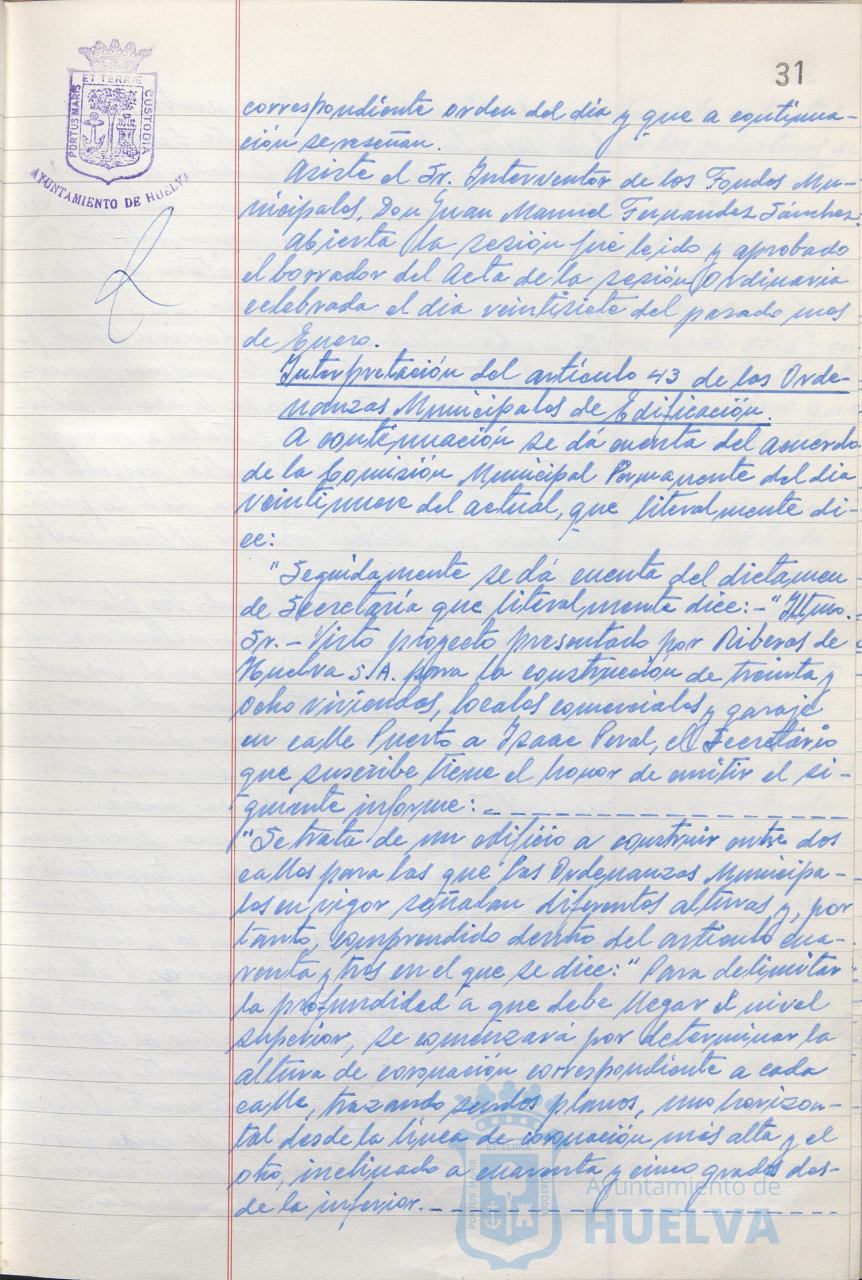 31
ET TERRÆ
PORTUS MARIS
CUSTODIA
AYUNTAMIENTO DE HUELVA
correspondiente orden del dia y que a continua-
ción se reseñan.
Asiste el Sr. Interventor de los Fondos Mu-
nicipales, Don Juan Manuel Fernandez Sánchez.
Abierta la sesión fué leido y aprobado
el borrador del Acta de la sesión Ordinaria
celebrada el dia veintisiete del pasado mes
de Enero.
Interpretación del artículo 43 de las Orde-
nanzas Municipales de Edificación.
A continuación se dá cuenta del acuerdo
de la Comisión Municipal Permanente del dia
veintinueve del actual, que literalmente di-
ce:
"Seguidamente se dá cuenta del dictamen
de Secretaría que literalmente dice:- "Iltmo.
Sr. - Visto proyecto presentado por Riberas de
Huelva S.A. para la construcción de treinta y
ocho viviendas, locales comerciales y garaje
en calle Puerto a Isaac Peral, el Secretario
que suscribe tiene el honor de emitir el si-
guiente informe: -
"Se trata de un edificio a construir entre dos
calles para las que las Ordenanzas Municipa-
les en vigor señalan diferentes alturas y, por
tanto, comprendido dentro del artículo cua-
renta y tres en el que se dice: "Para delimitar
la profundidad a que debe llegar el nivel
superior, se comenzará por determinar la
altura de coronación correspondiente a cada
calle, trazando sendos planos, uno horizon-
tal desde la línea de coronación más alta y el
otro, inclinado a cuarenta y cinco grados des-
de la inferior. -
ET TERRA
PORTUS MARIS
CUSTODIA
Ayuntamiento de
HUELVA